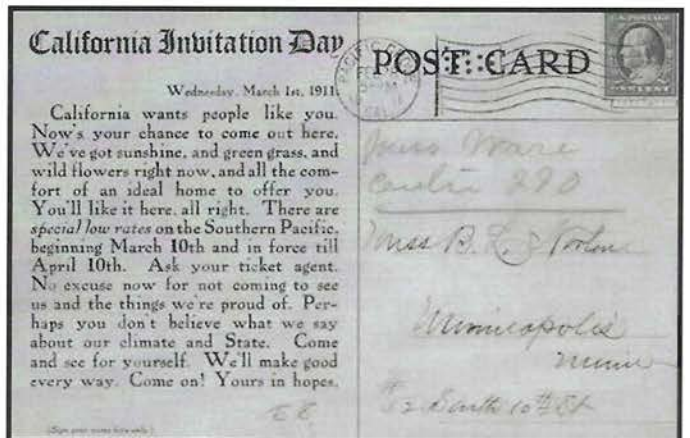 California Invitation Day
Wednesday, March 1st, 1911.
California wants people like you.
Now's your chance to come out here.
We've got sunshine, and green grass, and
wild flowers right now, and all the com-
fort of an ideal home to offer you.
You'll like it here, all right. There are
special low rates on the Southern Pacific,
beginning March 10th and in force till
April 10th. Ask your ticket agent.
No excuse now for not coming to see
us and the things we're proud of. Per-
haps you don't believe what we say
about our climate and State. Come
and see for yourself. We'll make good
every way. Come on! Yours in hopes,
(Sign your name here only.)
POST CARD
PACIFIC
CAL.
U.S. POSTAGE
Miss Ware
290
Miss B. L.
Minneapolis
Minn
South 10th St